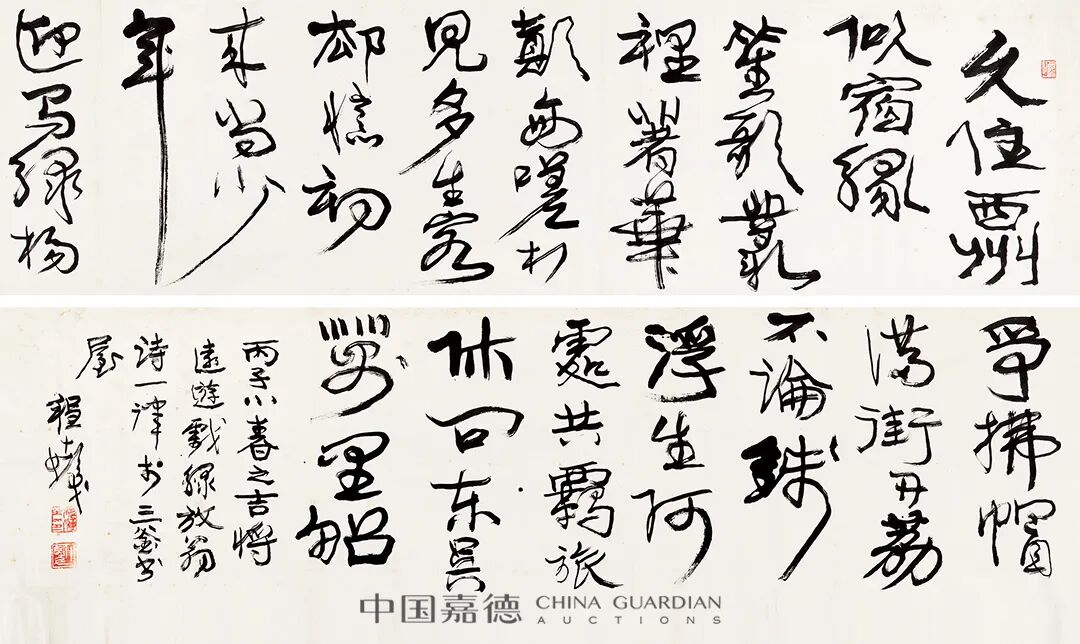 久住西州
似宿緣
笙歌叢
裡著華
顛每嗟相
見多生客
却憶初
來尚少
年
迎马綠楊
爭拂帽
滿街丹荔
不論錢
浮生何
處共羈旅
休问东吴
萬里船
丙子小春之吉將
遠遊戲錄放翁
詩一律於三釜書
屋
程十髮
中国嘉德 CHINA GUARDIAN
AUCTIONS